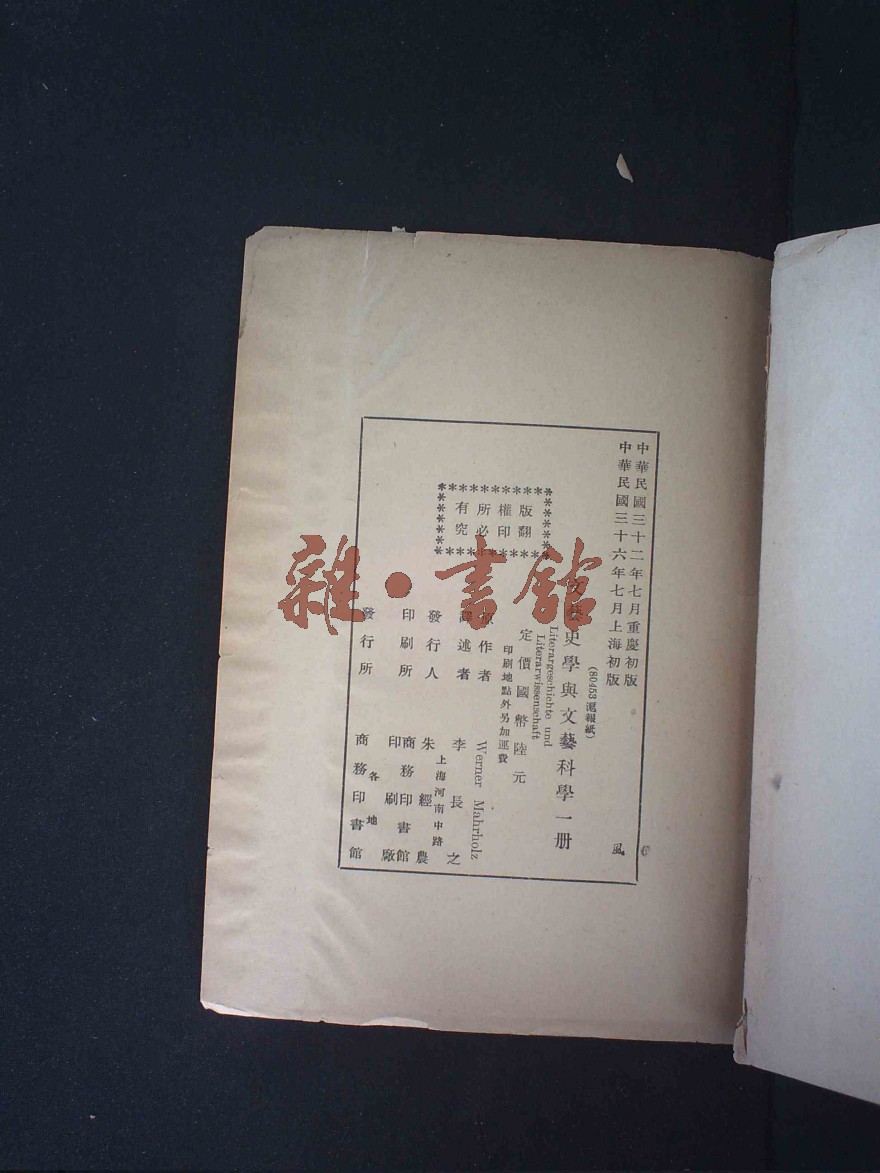 中華民國三十二年七月重慶初版
中華民國三十六年七月上海初版
(80453 滬報紙)
文藝史學與文藝科學一册
Literargeschichte und
Literarwissenschaft
定價國幣陸元
印刷地點外另加運費
版權所有
翻印必究
原作者 Werner Mahrholz
譯述者 李長之
發行人 朱經農
上海河南中路
印刷所 商務印書館
印刷廠
發行所 商務印書館
各地
風
雜·書館